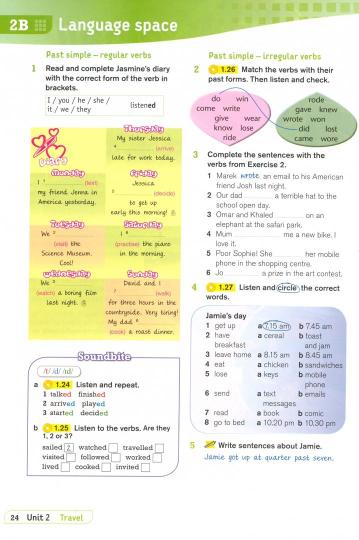 2B Language space
Past simple – regular verbs
1 Read and complete Jasmine's diary
with the correct form of the verb in
brackets.
I / you / he / she /
it / we / they
listened
diary
Monday
I 1 (text)
my friend Jenna in
America yesterday.
Tuesday
We 2
(visit) the
Science Museum.
Cool!
Wednesday
We 3
(watch) a boring film
last night.
Thursday
My sister Jessica
4 (arrive)
late for work today.
Friday
Jessica
5 (decide)
to get up
early this morning!
Saturday
I 6
(practise) the piano
in the morning.
Sunday
David and I
7 (walk)
for three hours in the
countryside. Very tiring!
My dad 8
(cook) a roast dinner.
Soundbite
/t/ /d/ /ɪd/
a 1.24 Listen and repeat.
1 talked finished
2 arrived played
3 started decided
b 1.25 Listen to the verbs. Are they
1, 2 or 3?
sailed 2 watched travelled
visited followed worked
lived cooked invited
Past simple – irregular verbs
2 1.26 Match the verbs with their
past forms. Then listen and check.
do win
come write
give wear
know lose
ride
rode
gave knew
wrote won
did lost
came wore
3 Complete the sentences with the
verbs from Exercise 2.
1 Marek wrote an email to his American
friend Josh last night.
2 Our dad a terrible hat to the
school open day.
3 Omar and Khaled on an
elephant at the safari park.
4 Mum me a new bike. I
love it.
5 Poor Sophie! She her mobile
phone in the shopping centre.
6 Jo a prize in the art contest.
4 1.27 Listen and circle the correct
words.
Jamie's day
1 get up a 7.15 am b 7.45 am
2 have breakfast a cereal b toast and jam
3 leave home a 8.15 am b 8.45 am
4 eat a chicken b sandwiches
5 lose a keys b mobile phone
6 send a text messages b emails
7 read a book b comic
8 go to bed a 10.20 pm b 10.30 pm
5 Write sentences about Jamie.
Jamie got up at quarter past seven.
24 Unit 2 Travel